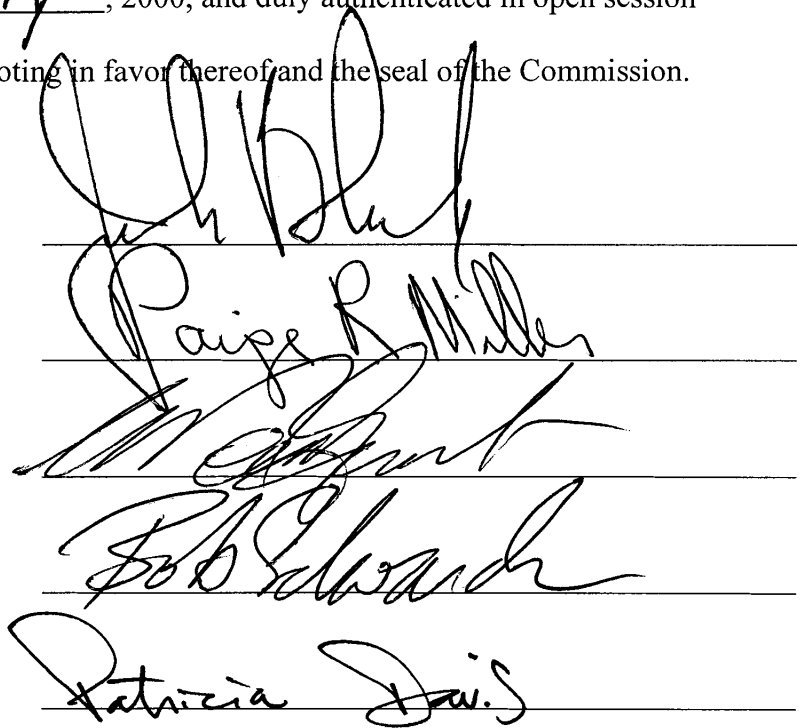 , 2000, and duly authenticated in open session
oting in favor thereof and the seal of the Commission.
Paige R Miller
Bob Edwards
Patricia Davis